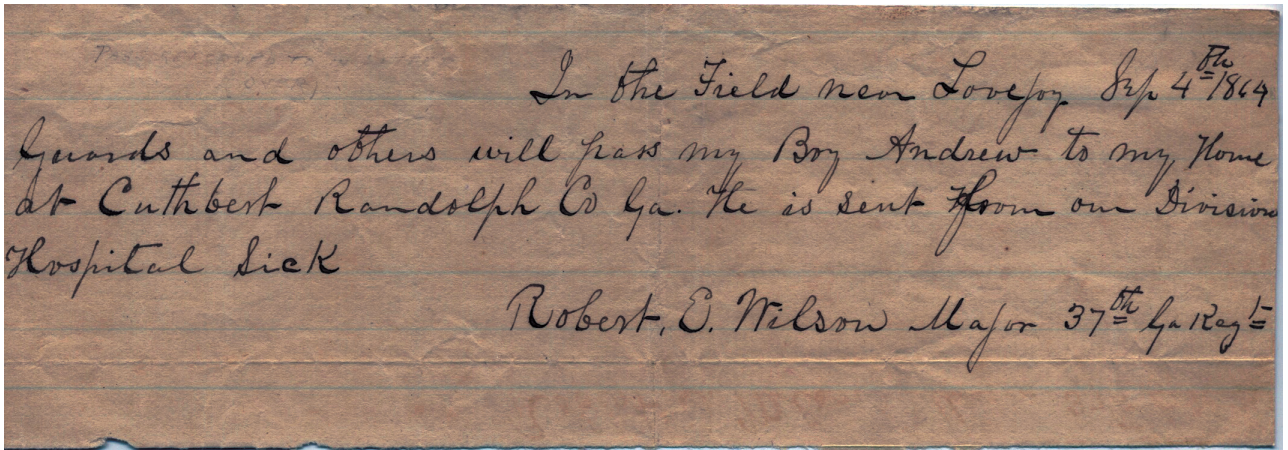 In the Field near Lovejoy Sep 4th 1864
Guards and others will pass my Boy Andrew to my Home
at Cuthbert Randolph Co Ga. He is sent from our Division
Hospital Sick
Robert, E. Wilson Major 37th Ga Regt